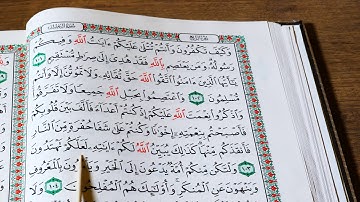 وَكَيْفَ تَكْفُرُونَ وَأَنتُمْ تُتْلَىٰ عَلَيْكُمْ ءَايَٰتُ ٱللَّهِ وَفِيكُمْ
رَسُولُهُۥ وَمَن يَعْتَصِم بِٱللَّهِ فَقَدْ هُدِىَ إِلَىٰ صِرَٰطٍ مُّسْتَقِيمٍ ١٠١
يَٰٓأَيُّهَا ٱلَّذِينَ ءَامَنُوا۟ ٱتَّقُوا۟ ٱللَّهَ حَقَّ تُقَاتِهِۦ وَلَا تَمُوتُنَّ إِلَّا وَأَنتُم
مُّسْلِمُونَ ١٠٢ وَٱعْتَصِمُوا۟ بِحَبْلِ ٱللَّهِ جَمِيعًا وَلَا تَفَرَّقُوا۟
وَٱذْكُرُوا۟ نِعْمَتَ ٱللَّهِ عَلَيْكُمْ إِذْ كُنتُمْ أَعْدَآءً فَأَلَّفَ بَيْنَ قُلُوبِكُمْ
فَأَصْبَحْتُم بِنِعْمَتِهِۦٓ إِخْوَٰنًا وَكُنتُمْ عَلَىٰ شَفَا حُفْرَةٍ مِّنَ ٱلنَّارِ
فَأَنقَذَكُم مِّنْهَا كَذَٰلِكَ يُبَيِّنُ ٱللَّهُ لَكُمْ ءَايَٰتِهِۦ لَعَلَّكُمْ تَهْتَدُونَ
١٠٣ وَلْتَكُن مِّنكُمْ أُمَّةٌ يَدْعُونَ إِلَى ٱلْخَيْرِ وَيَأْمُرُونَ بِٱلْمَعْرُوفِ
وَيَنْهَوْنَ عَنِ ٱلْمُنكَرِ وَأُو۟لَٰٓئِكَ هُمُ ٱلْمُفْلِحُونَ ١٠٤ وَلَا